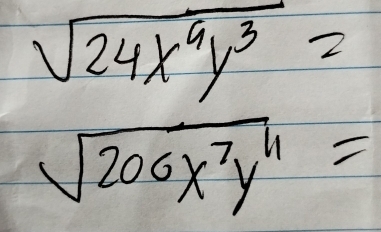 √24x⁹y³ =
√206x⁷y¹¹ =